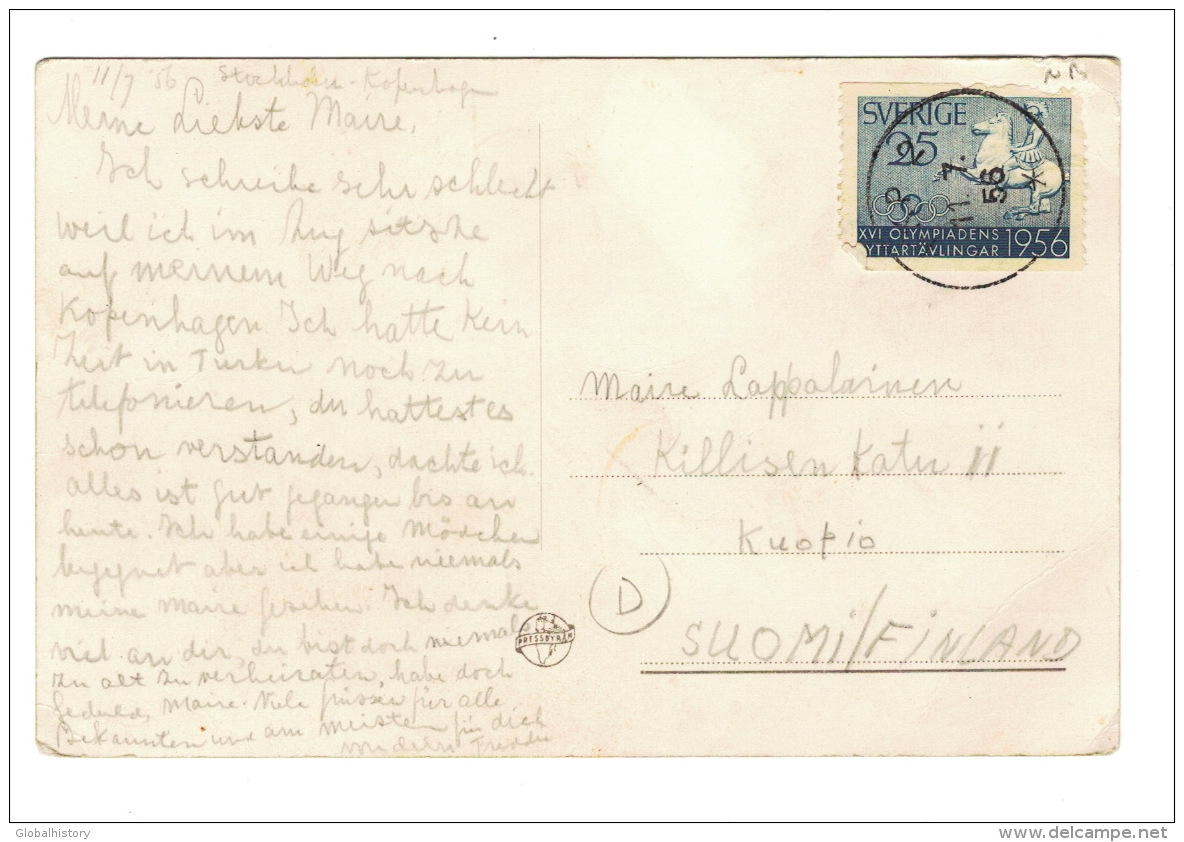 11/7 56 Stockholm-Kopenhagen
Meine Liebste Maire,
Ich schreibe sehr schlecht
weil ich im Zug sitsze
auf meinem Weg nach
Kopenhagen. Ich hatte kein
Zeit in Turku noch zu
telefonieren, du hattest es
schon verstanden, dachte ich.
alles ist gut gegangen bis an
heute. Ich habe einige Mädchen
begegnet aber ich habe niemals
meine Maire gesehen. Ich denke
viel an dir, du bist doch niemals
zu alt zu verheiraten, habe doch
Geduld, Maire. Viele grüssen für alle
Bekannten und am meisten für dich
von dein Freddie
NB
SVERIGE
25
PKP
11 7.
56
XVI OLYMPIADENS
RYTTARTÄVLINGAR 1956
Maire Lappalainen
Killisen Katu 11
Kuopio
D
SUOMI/FINLAND
PRESSBYRÅN
Globalhistory
www.delcampe.net